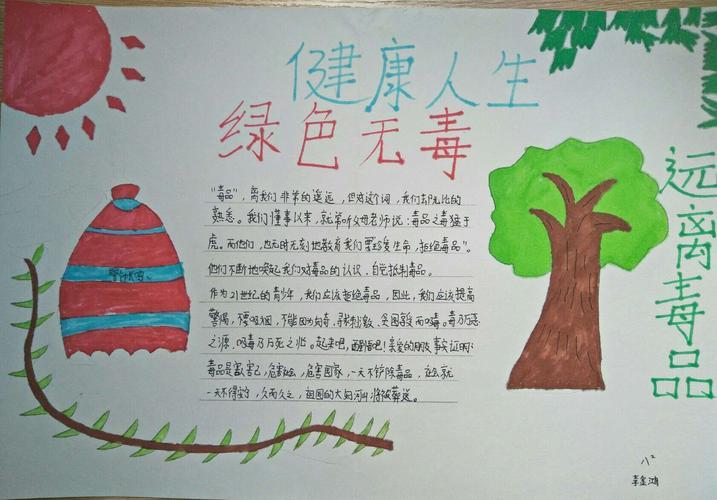 健康人生
绿色无毒
远离毒品
警钟长鸣
"毒品",离我们非常的遥远,但对这个词,我们却无比的
熟悉。我们懂事以来,就常听父母老师说:毒品之毒猛于
虎。而他们,也无时无刻地教育我们要珍爱生命,拒绝毒品"。
他们不断地唤起我们对毒品的认识,自觉抵制毒品。
作为21世纪的青少年,我们应该拒绝毒品,因此,我们应该提高
警惕,不要吸烟,不能因为好奇,寻求刺激,贪图享受而吸毒。毒乃万恶
之源,吸毒乃万死之北。起来吧,醒醒吧!亲爱的朋友,事实证明:
毒品危害己,危害家庭,危害国家,一天不铲除毒品,社会就
一天不得安宁,久而久之,祖国的大好河山将被葬送。
八²
李金鸿